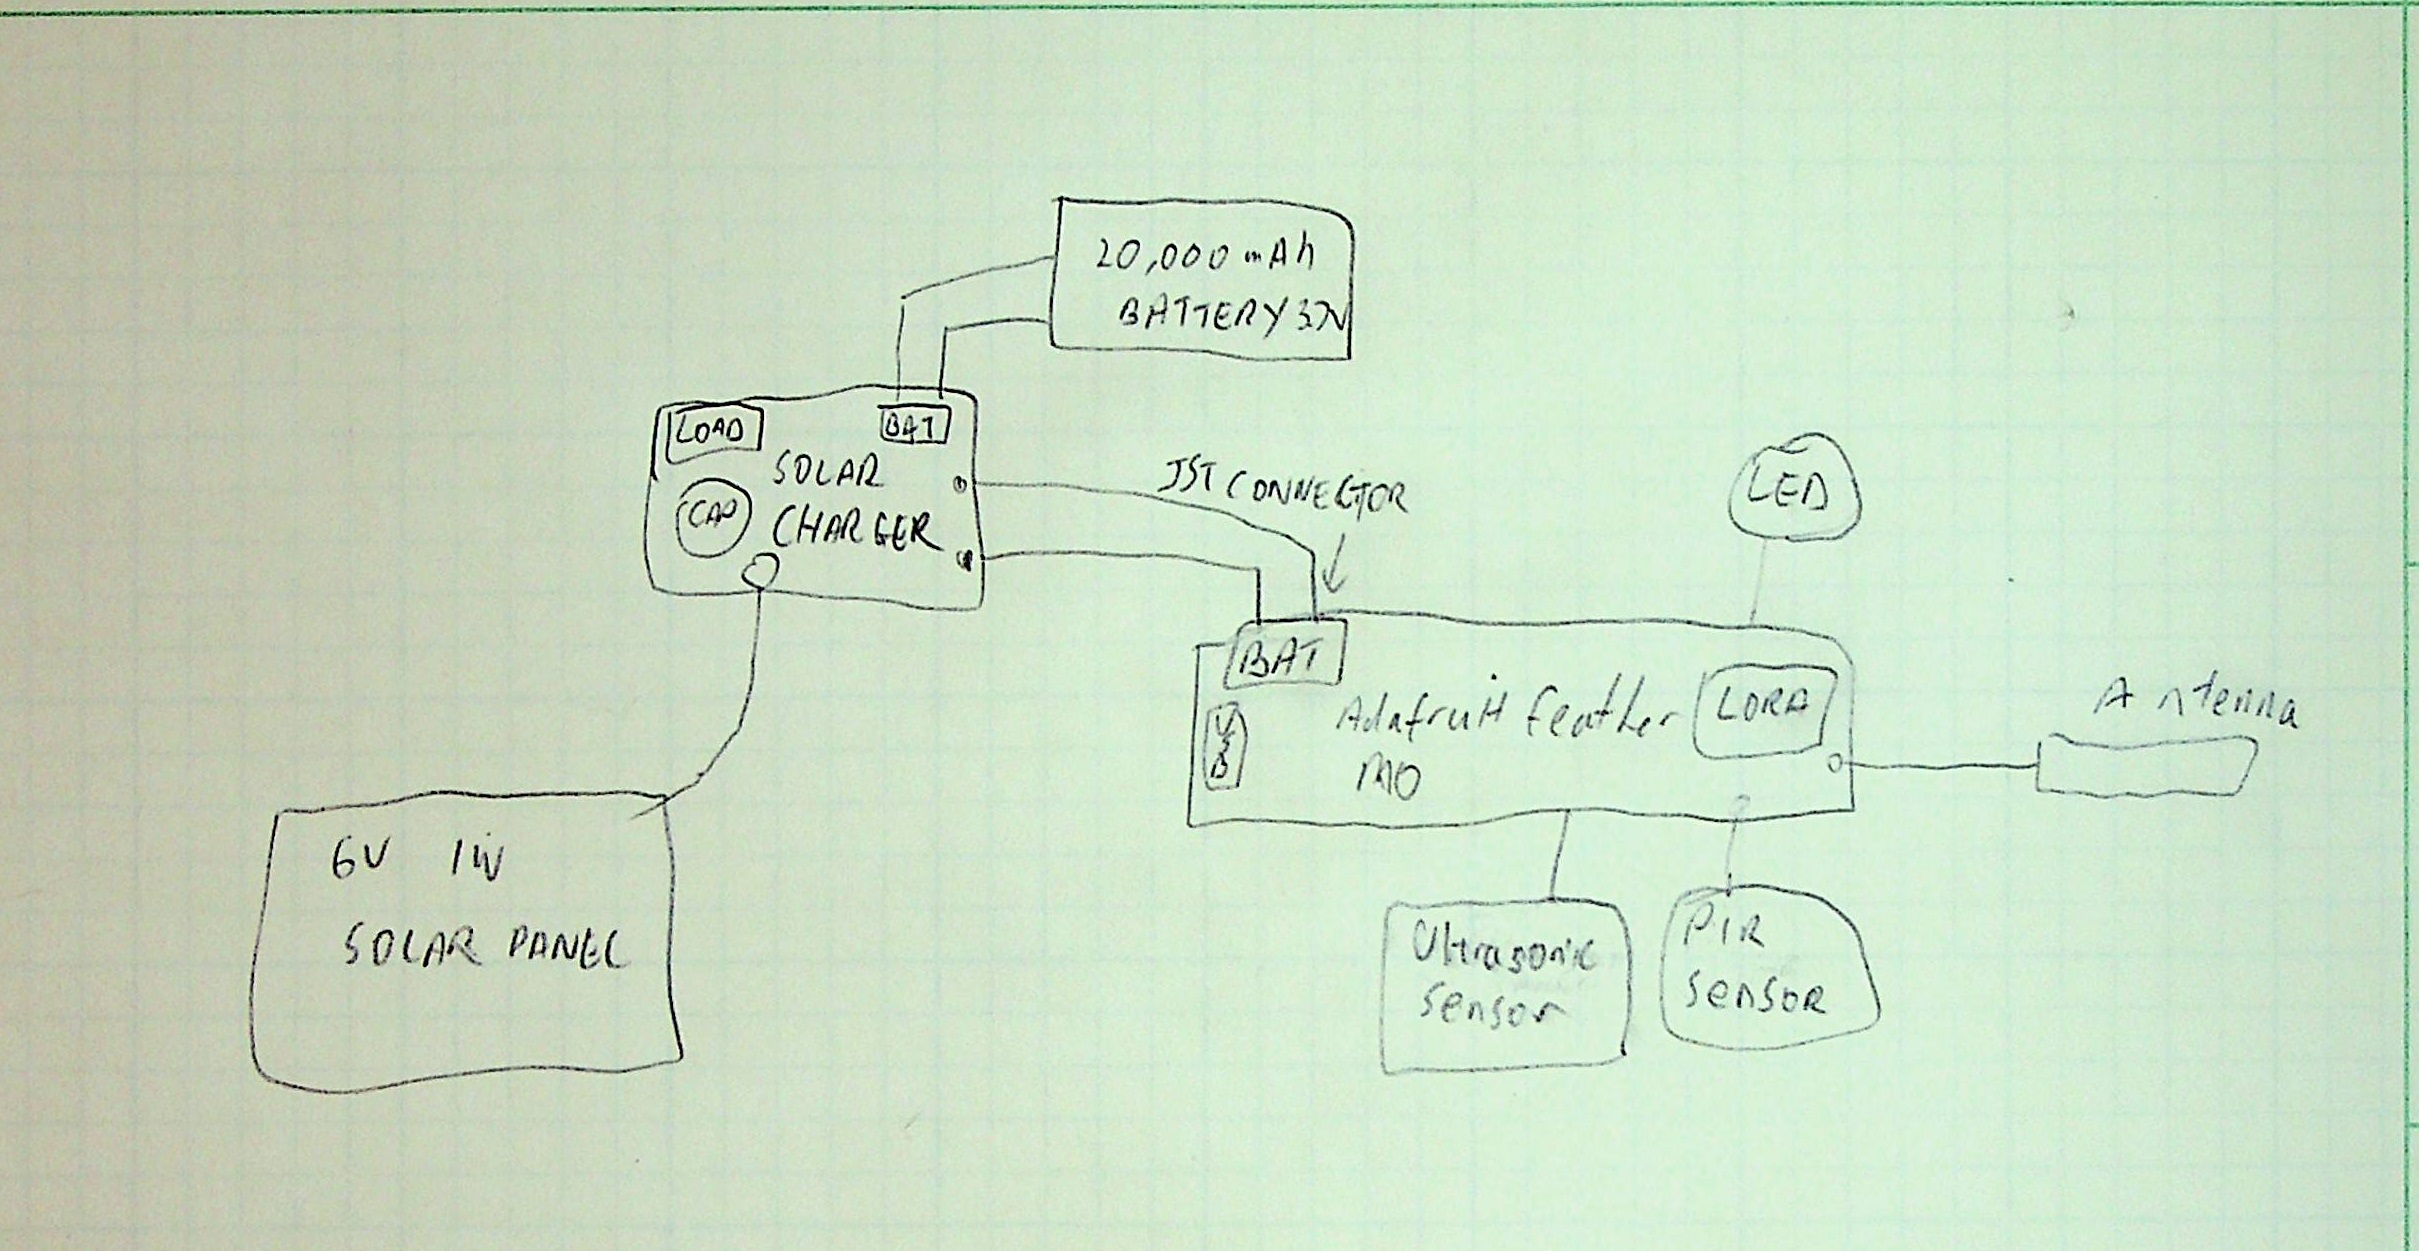 20,000 mAh
BATTERY 3.7V
LOAD
BAT
SOLAR
CHARGER
CAP
JST CONNECTOR
LED
BAT
USB
Adafruit feather
M0
LORA
Antenna
6V 1W
SOLAR PANEL
Ultrasonic
Sensor
PIR
SENSOR